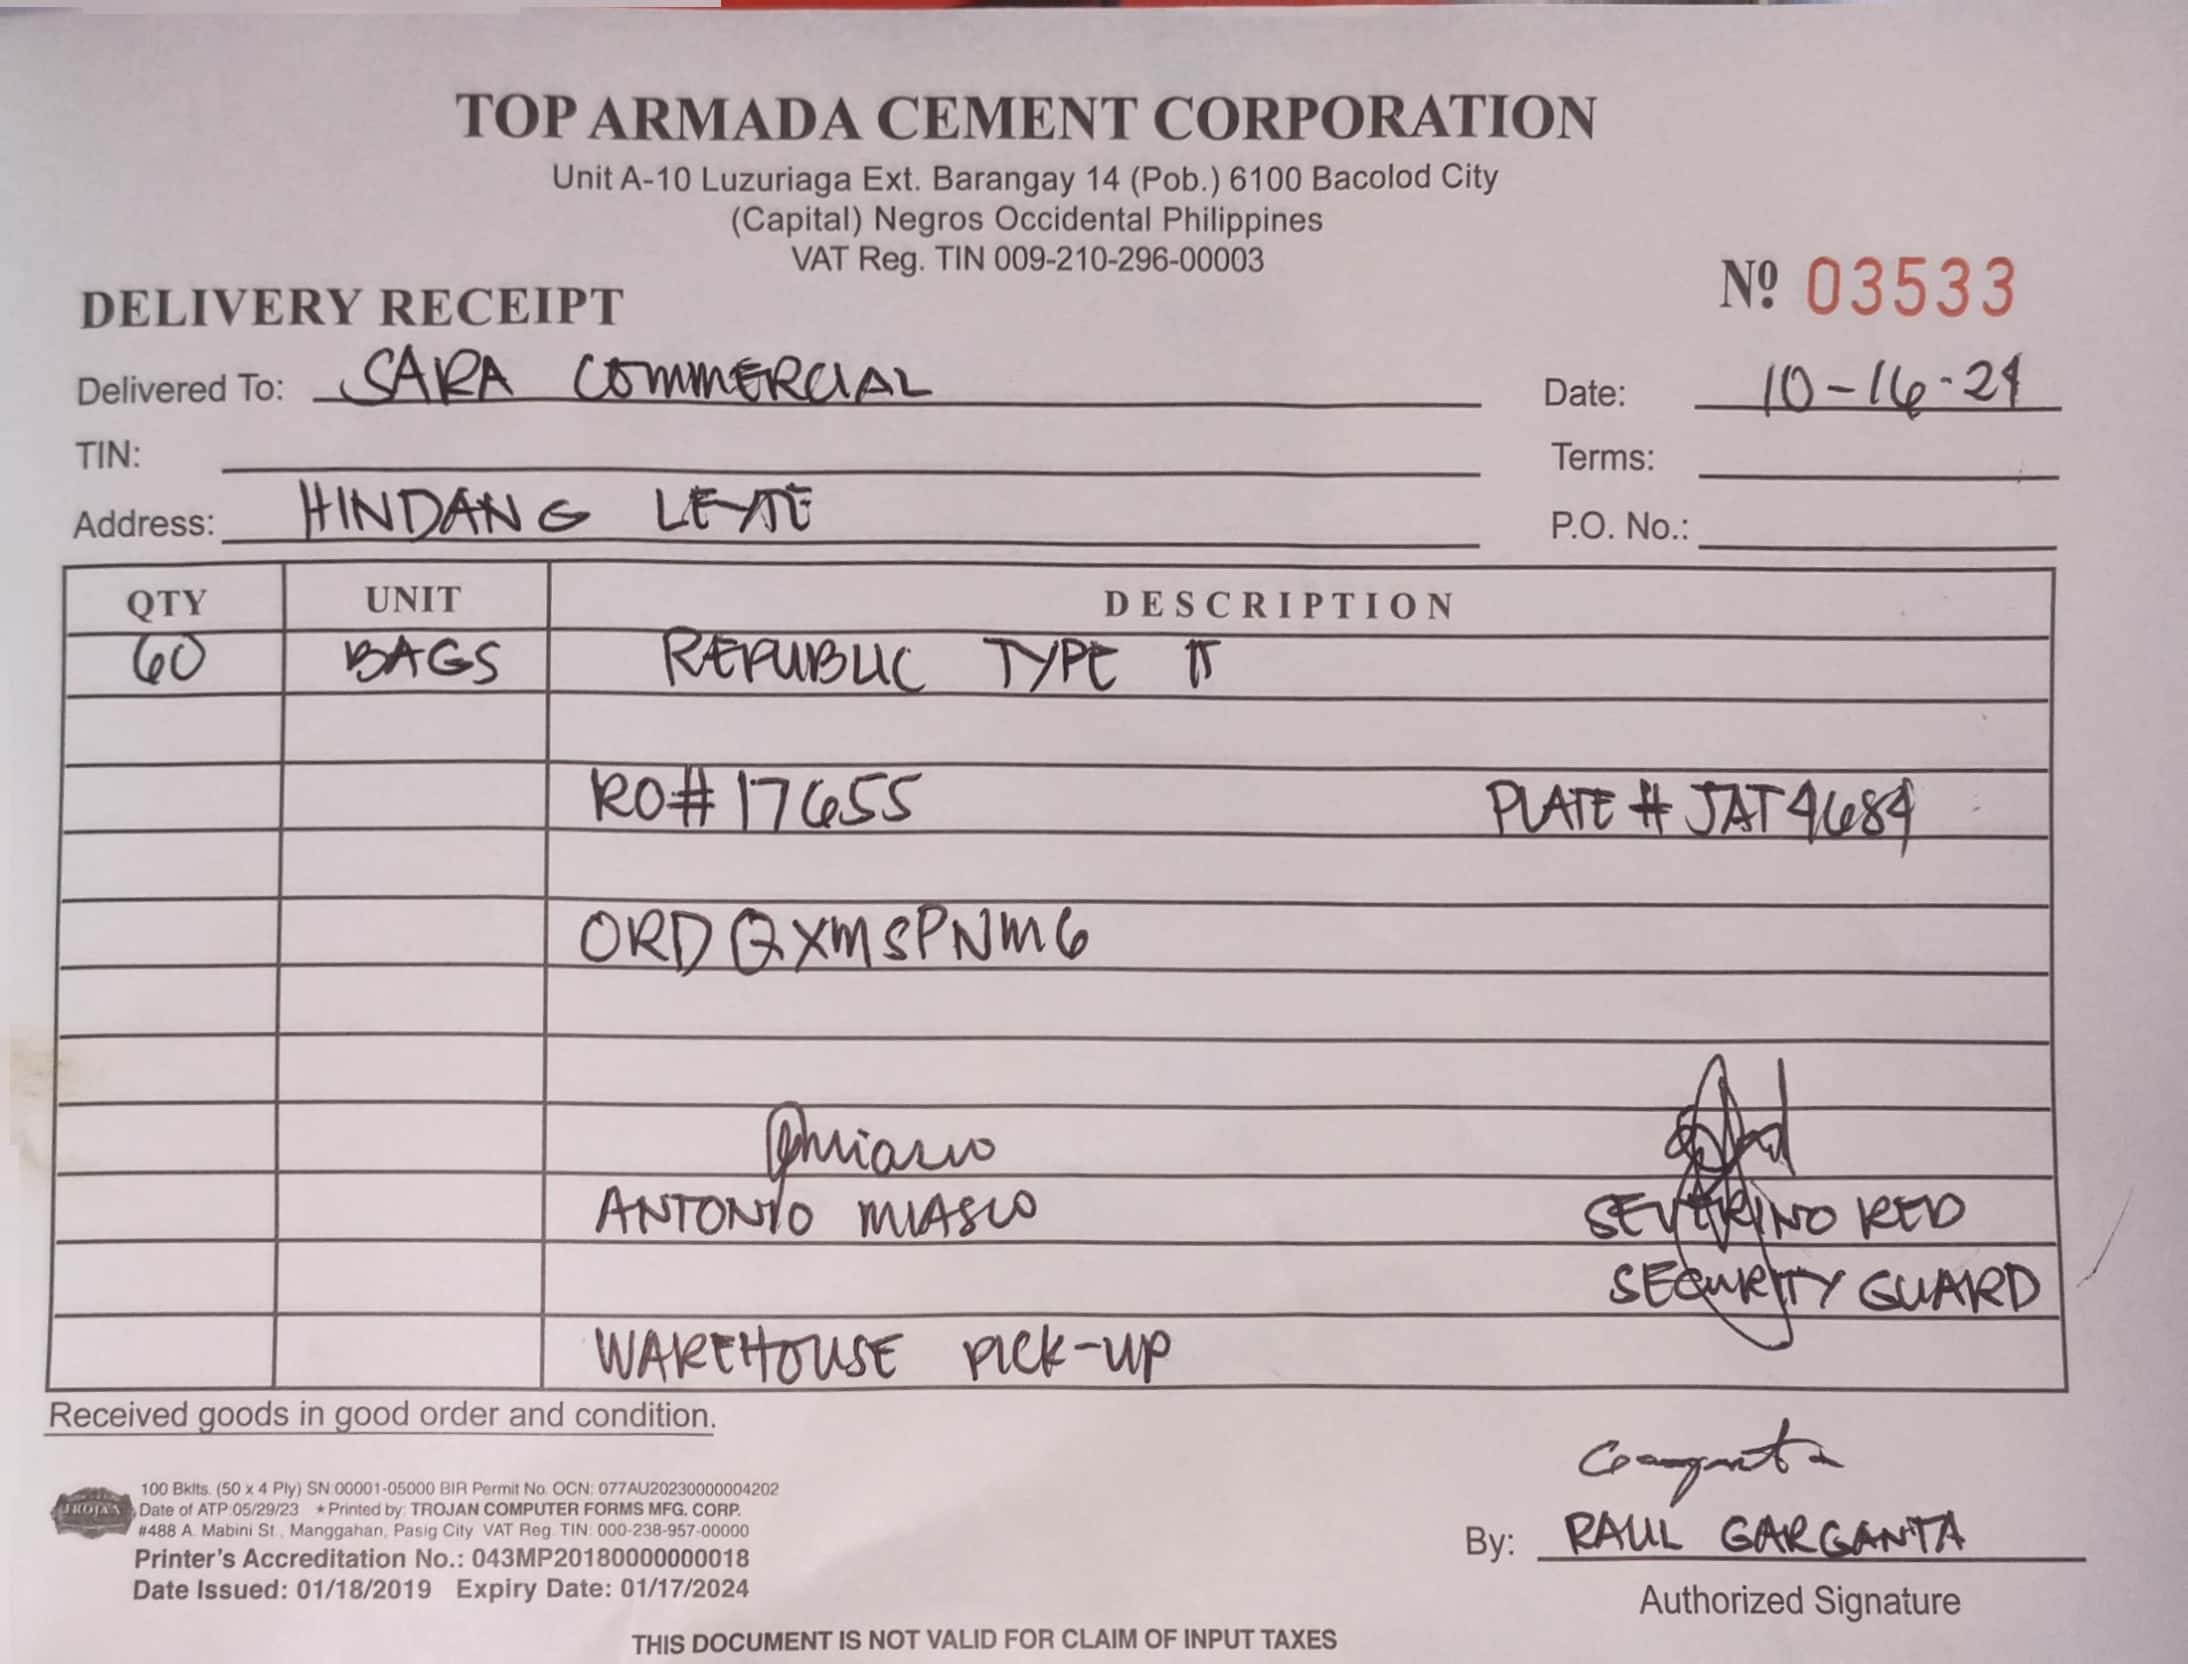 TOP ARMADA CEMENT CORPORATION
Unit A-10 Luzuriaga Ext. Barangay 14 (Pob.) 6100 Bacolod City
(Capital) Negros Occidental Philippines
VAT Reg. TIN 009-210-296-00003
Nº 03533
DELIVERY RECEIPT
Delivered To: SARA COMMERCIAL Date: 10-16-24
TIN: Terms:
Address: HINDANG LEYTE P.O. No.:
QTY UNIT DESCRIPTION
60 BAGS REPUBLIC TYPE II
RO# 17655 PLATE # JAT4684
ORDQXMSPNM6
ANTONIO MIASCO SEVERINO RED
SECURITY GUARD
WAREHOUSE PICK-UP
Received goods in good order and condition.
TROJAN
100 Bklts. (50 x 4 Ply) SN 00001-05000 BIR Permit No. OCN: 077AU20230000004202
Date of ATP 05/29/23 ★ Printed by: TROJAN COMPUTER FORMS MFG. CORP.
#488 A. Mabini St., Manggahan, Pasig City VAT Reg. TIN: 000-238-957-00000
Printer's Accreditation No.: 043MP20180000000018
Date Issued: 01/18/2019 Expiry Date: 01/17/2024
By: RAUL GARGANTA
Authorized Signature
THIS DOCUMENT IS NOT VALID FOR CLAIM OF INPUT TAXES